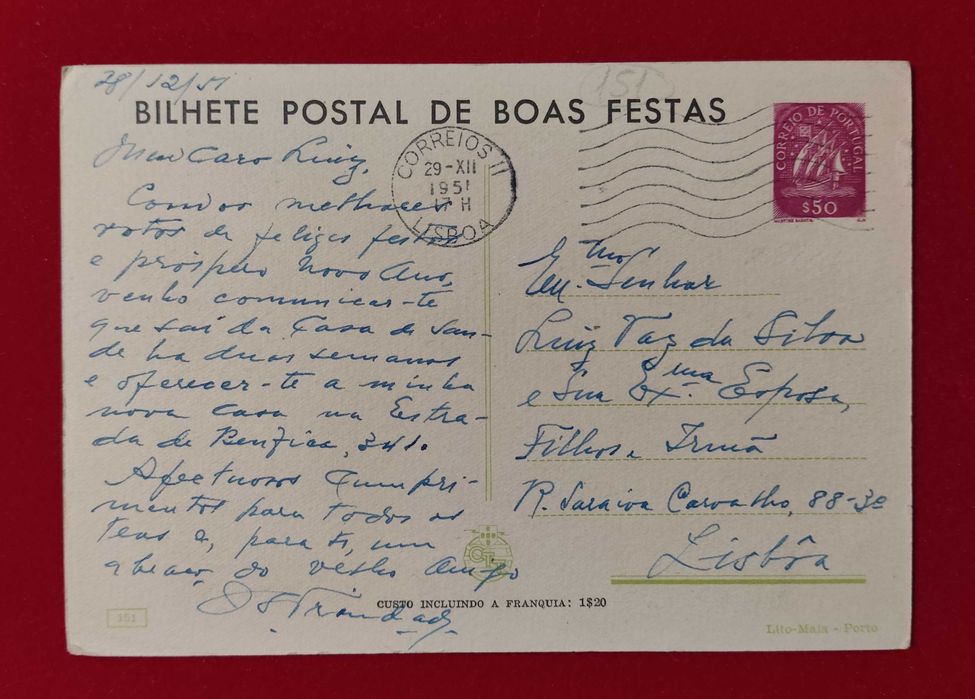 28/12/51
151
BILHETE POSTAL DE BOAS FESTAS
Meu Caro Luiz,
Com os melhores
votos de felizes festas
e próspero Novo Ano,
venho comunicar-te
que saí da Casa de Saú-
de ha duas semanas
e oferecer-te a minha
nova casa na Estra-
da de Benfica, 341.
Afectuosos cumpri-
mentos para todos os
teus e, para ti, um
abraço do velho amigo
Trindade
CORREIOS II
29-XII
1951
17 H
LISBOA
CORREIO DE PORTUGAL
$50
Ex.mo Senhor
Luiz Vaz da Silva
e Sua Ex.ma Esposa,
Filhos e Irmã
R. Saraiva Carvalho, 88-3º
Lisbôa
CTT
CUSTO INCLUINDO A FRANQUIA: 1$20
151
Lito-Maia - Porto